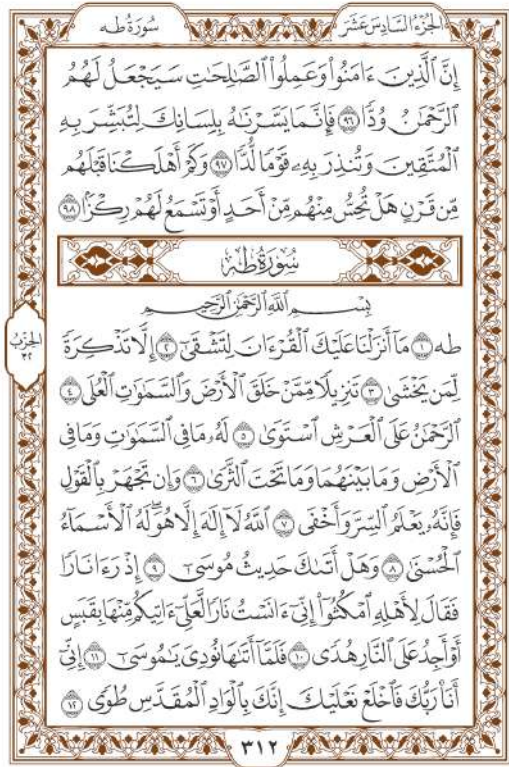 الجزء السادس عشر
سورة طه
إِنَّ ٱلَّذِينَ ءَامَنُواْ وَعَمِلُواْ ٱلصَّٰلِحَٰتِ سَيَجْعَلُ لَهُمُ
ٱلرَّحْمَٰنُ وُدًّا ٩٦ فَإِنَّمَا يَسَّرْنَٰهُ بِلِسَانِكَ لِتُبَشِّرَ بِهِ
ٱلْمُتَّقِينَ وَتُنذِرَ بِهِۦ قَوْمًا لُّدًّا ٩٧ وَكَمْ أَهْلَكْنَا قَبْلَهُم
مِّن قَرْنٍ هَلْ تُحِسُّ مِنْهُم مِّنْ أَحَدٍ أَوْ تَسْمَعُ لَهُمْ رِكْزًۢا ٩٨
سُورَةُ طه
بِسْمِ ٱللَّهِ ٱلرَّحْمَٰنِ ٱلرَّحِيمِ
طه ١ مَآ أَنزَلْنَا عَلَيْكَ ٱلْقُرْءَانَ لِتَشْقَىٰٓ ٢ إِلَّا تَذْكِرَةً
لِّمَن يَخْشَىٰ ٣ تَنزِيلًا مِّمَّنْ خَلَقَ ٱلْأَرْضَ وَٱلسَّمَٰوَٰتِ ٱلْعُلَى ٤
ٱلرَّحْمَٰنُ عَلَى ٱلْعَرْشِ ٱسْتَوَىٰ ٥ لَهُۥ مَا فِى ٱلسَّمَٰوَٰتِ وَمَا فِى
ٱلْأَرْضِ وَمَا بَيْنَهُمَا وَمَا تَحْتَ ٱلثَّرَىٰ ٦ وَإِن تَجْهَرْ بِٱلْقَوْلِ
فَإِنَّهُۥ يَعْلَمُ ٱلسِّرَّ وَأَخْفَى ٧ ٱللَّهُ لَآ إِلَٰهَ إِلَّا هُوَۖ لَهُ ٱلْأَسْمَآءُ
ٱلْحُسْنَىٰ ٨ وَهَلْ أَتَىٰكَ حَدِيثُ مُوسَىٰٓ ٩ إِذْ رَءَا نَارًا
فَقَالَ لِأَهْلِهِ ٱمْكُثُوٓاْ إِنِّىٓ ءَانَسْتُ نَارًا لَّعَلِّىٓ ءَاتِيكُم مِّنْهَا بِقَبَسٍ
أَوْ أَجِدُ عَلَى ٱلنَّارِ هُدًى ١٠ فَلَمَّآ أَتَىٰهَا نُودِىَ يَٰمُوسَىٰٓ ١١ إِنِّىٓ
أَنَا۠ رَبُّكَ فَٱخْلَعْ نَعْلَيْكَ إِنَّكَ بِٱلْوَادِ ٱلْمُقَدَّسِ طُوًى ١٢
الحزب
٣٢
٣١٢